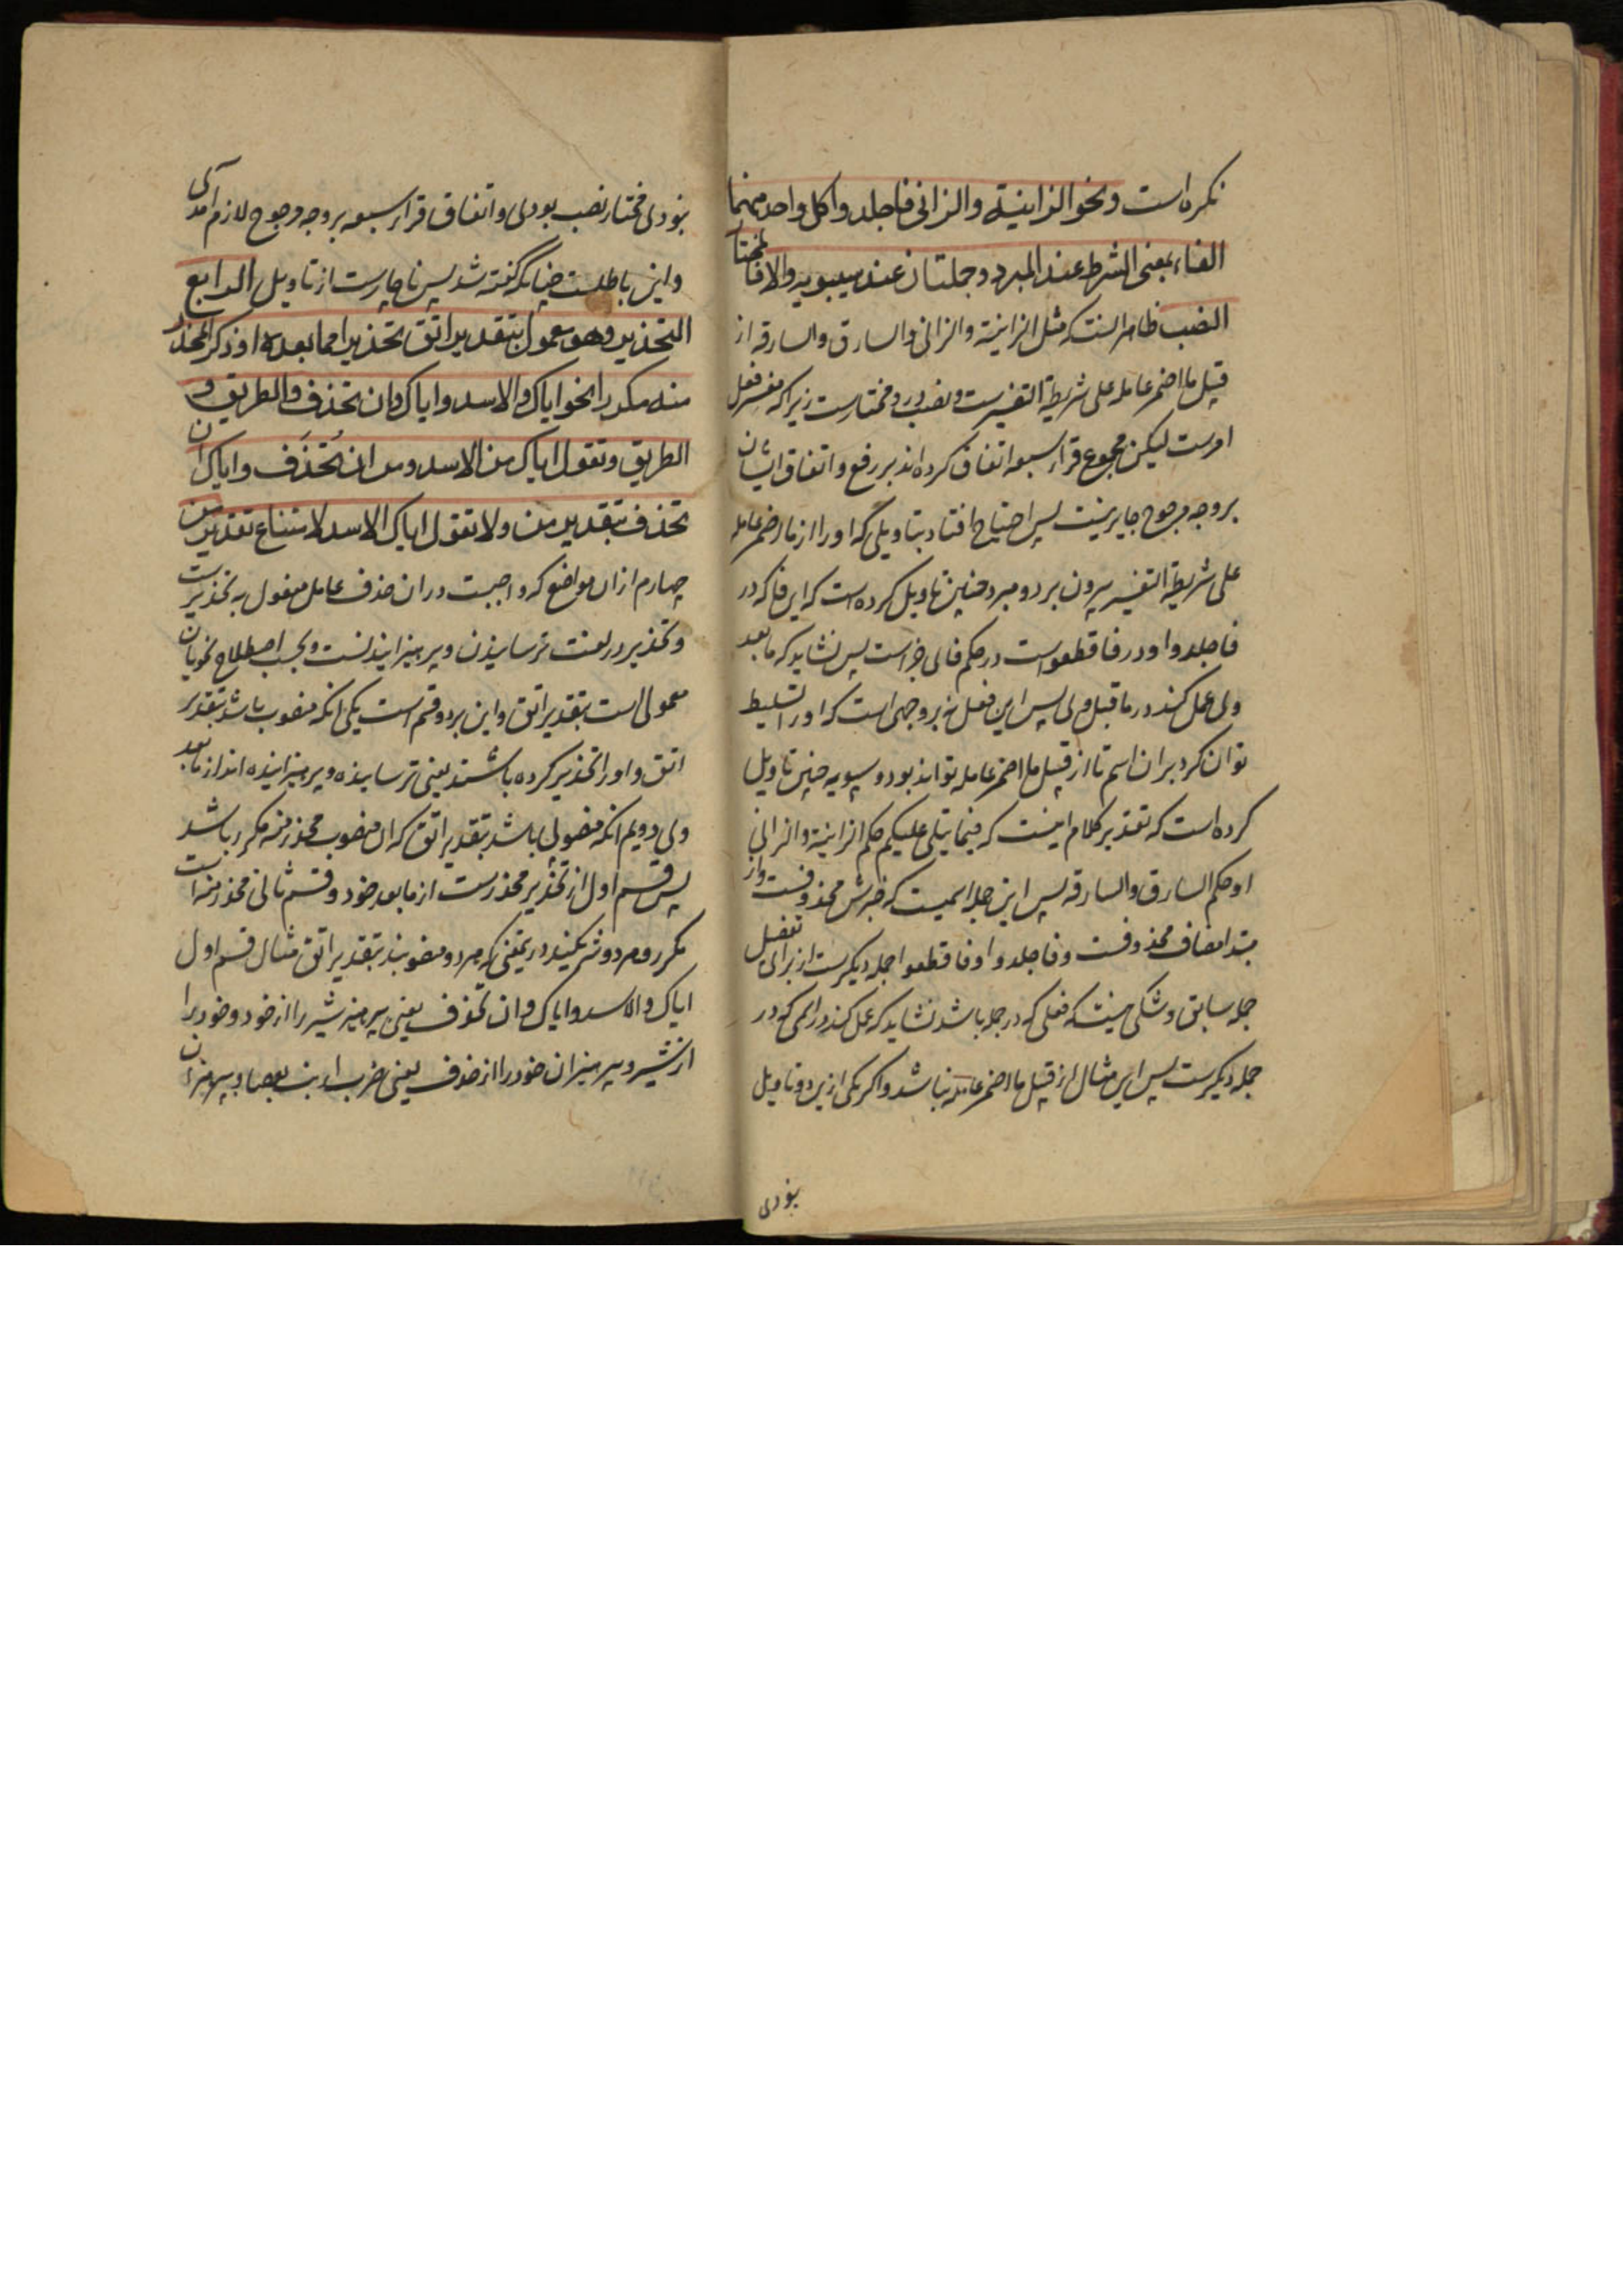 نکره است ونحو الزانیة والزانی فاجلدوا کل واحد منهما
الفاء بمعنی الشرط عند المبرد وجملتان عند سیبویه والا فالمختار
النصب ظاهر انست که مثل الزانیة والزانی والسارق والسارقه از
قبیل ما اضمر عامله علی شریطة التفسیرست ونصب درو مختارست زیرا که مفسر فعل
امرست لیکن مجموع قراء سبعه اتفاق کرده اند بر رفع واتفاق ایشان
بر وجه مرجوح جایز نیست پس احتیاج افتاد بتاویلی که او را از ما اضمر عامله
علی شریطة التفسیر بیرون برد ومبرد چنین تاویل کرده است که این فا که در
فاجلدوا ودر فاقطعواست در حکم فای جزاست پس نشاید که ما بعد
وی عمل کند در ما قبل وی پس این فعل نه بر وجهی است که او را تسلیط
توان کرد بران اسم تا از قبیل ما اضمر عامله تواند بود وسیبویه چنین تاویل
کرده است که تقدیر کلام اینست که فیما یتلی علیکم حکم الزانیة والزانی
او حکم السارق والسارقه پس این جمله اسمیست که خبرش محذوفست واز
مبتدا مضاف محذوفست وفاجلدوا وفاقطعوا جمله دیگرست از برای تفصیل
جمله سابق وشکی نیست که فعلی که در جمله باشد نشاید که عمل کند در اسمی که در
جمله دیگرست پس این مثال از قبیل ما اضمر عامله نباشد واکر یکی ازین دو تاویل
نبودی
نبودی مختار نصب بودی واتفاق قراء سبعه بر وجه مرجوح لازم آمدی
واین باطلست چنانکه گفته شد پس ناچارست از تاویل الرابع
التحذیر وهو معمول بتقدیر اتق تحذیرا مما بعده او ذکر المحذر
منه مکررا نحو ایاک والاسد وایاک وان تحذف والطریق
الطریق وتقول ایاک من الاسد ومن ان تحذف وایاک ان
تحذف بتقدیر من ولا تقول ایاک الاسد لامتناع تقدیر من
چهارم ازان مواضع که واجبست دران حذف عامل مفعول به تحذیرست
وتحذیر در لغت ترسانیدن وپرهیزانیدنست وبحسب اصطلاح نحویان
معمولی است بتقدیر اتق واین بر دو قسم است یکی انکه منصوب باشد بتقدیر
اتق واو را تحذیر کرده باشند یعنی ترسانیده وپرهیزانیده اند از ما بعد
وی دویم انکه منصوب باشد بتقدیر اتق که ان منصوب محذر منه مکرر باشد
پس قسم اول از تحذیر محذرست از ما بعد خود وقسم ثانی محذر منه است
مکرر وهر دو شریکند در یمعنی که هر دو منصوبند بتقدیر اتق مثال قسم اول
ایاک والاسد وایاک وان تحذف یعنی بپرهیز شیر را از خود وخود را
از شیر وبپرهیزان خود را از حذف یعنی ضرب ارنب بعصا وبپرهیزان